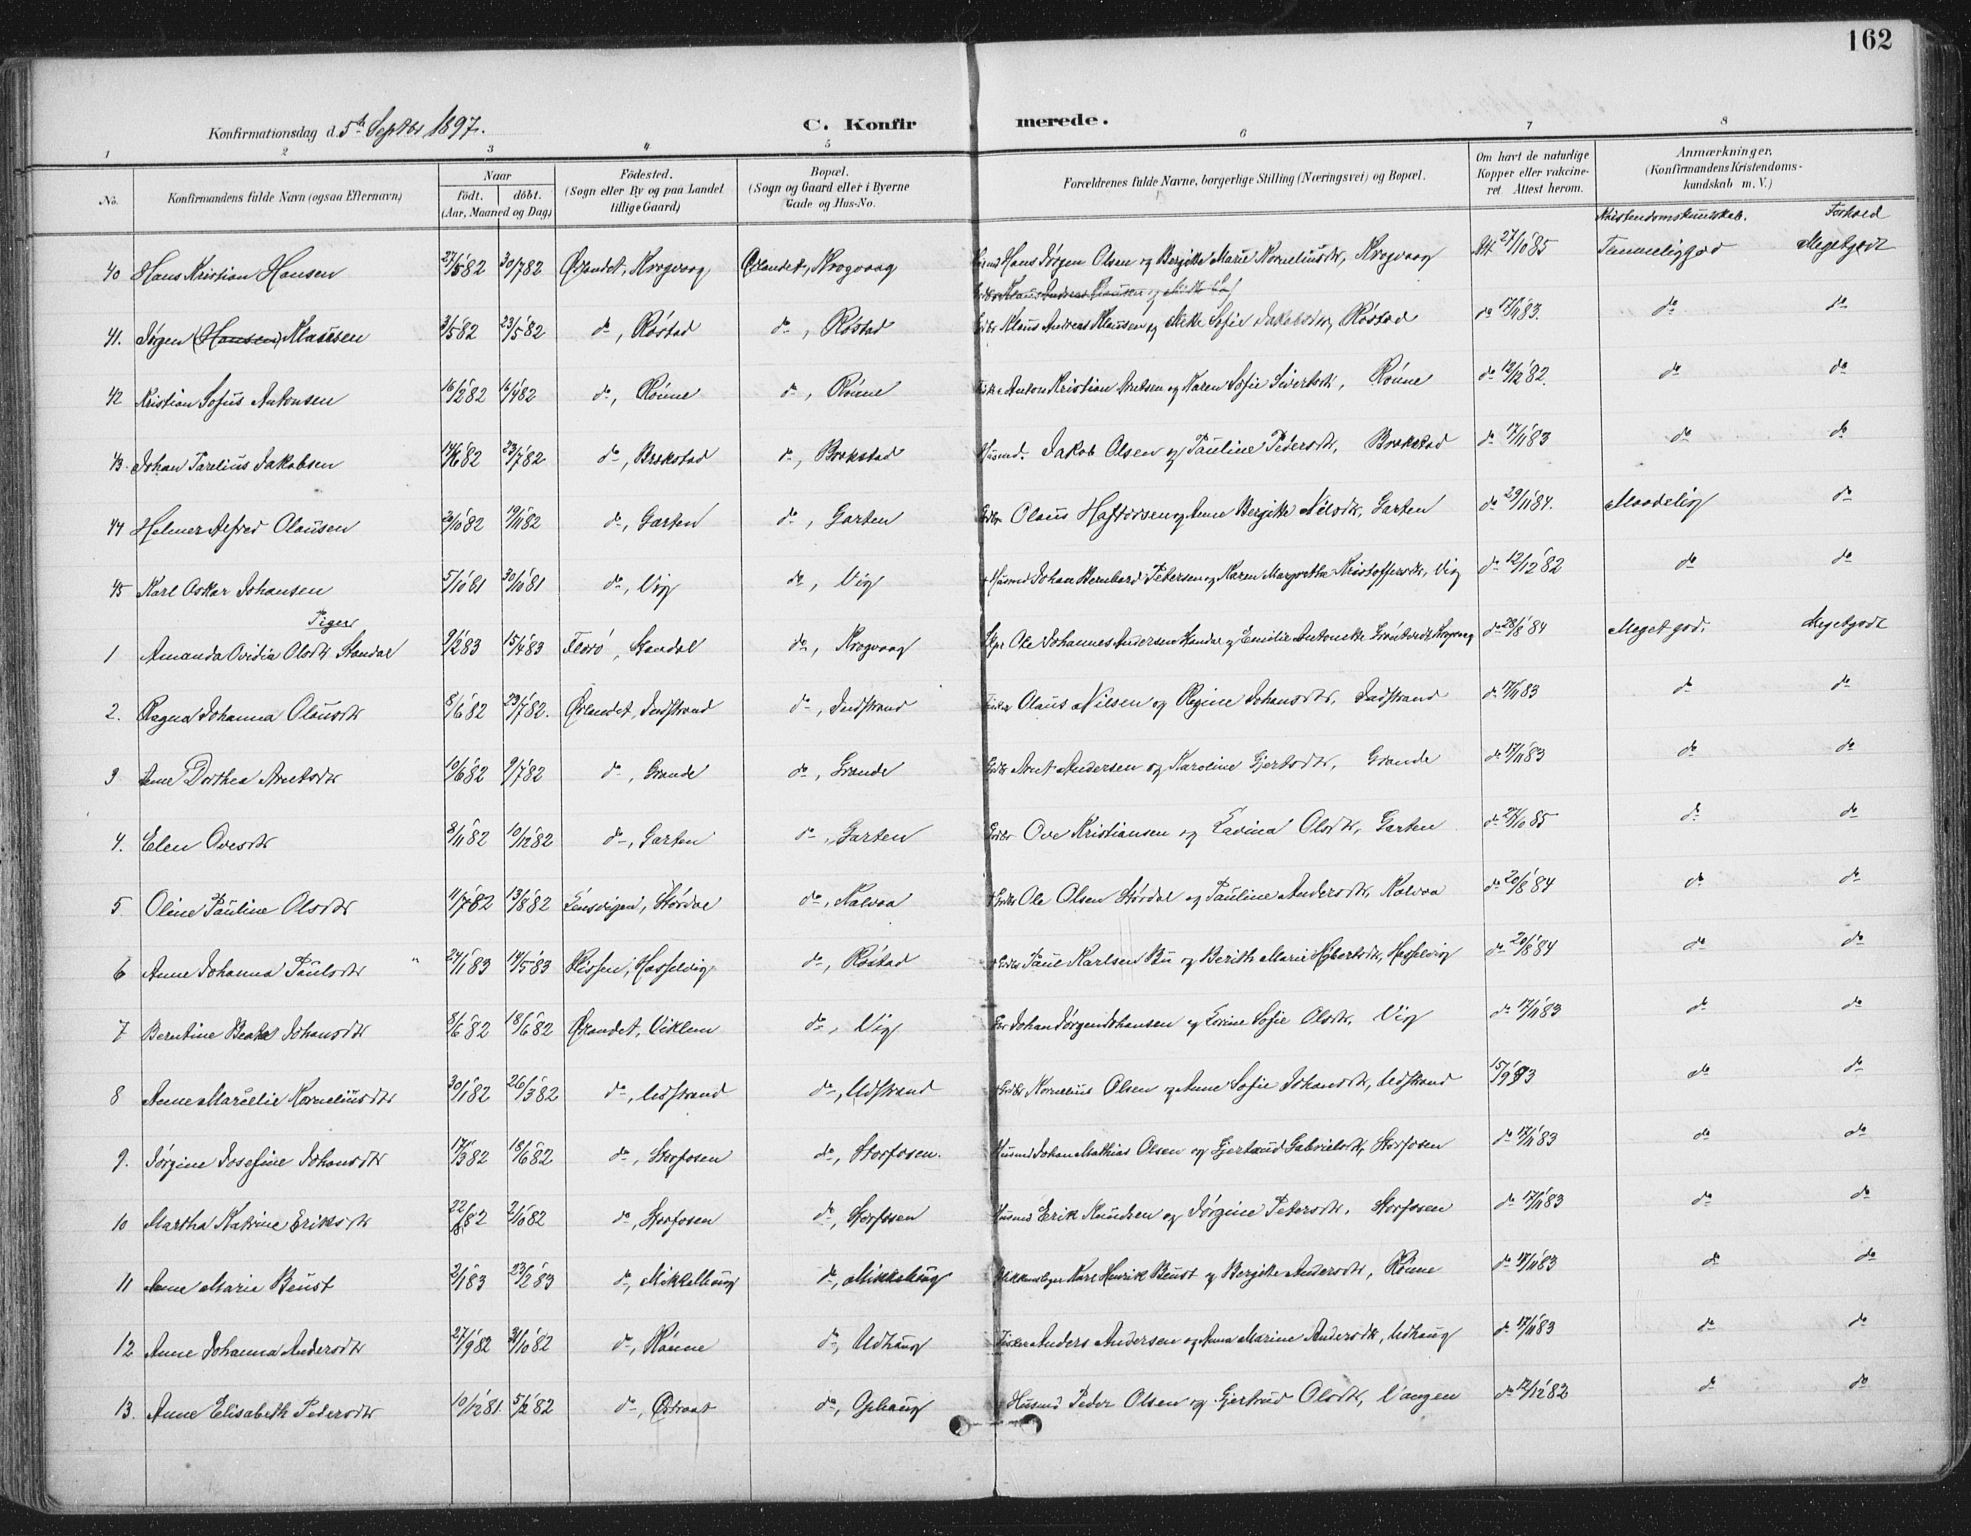 162
Konfirmationsdag d. 5te Septbr 1897.
C. Konfirmerede.
1 2 3 4 5 6 7 8
No. Konfirmandens fulde Navn (ogsaa Efternavn) Naar født. døbt. (Aar, Maaned og Dag) Födested. (Sogn eller By og paa Landet tillige Gaard) Bopæl. (Sogn og Gaard eller i Byerne Gade og Hus-No. Forældrenes fulde Navne, borgerlige Stilling (Næringsvei) og Bopæl. Om havt de naturlige Kopper eller vakcineret. Attest herom. Anmærkninger. (Konfirmandens Kristendomskundskab m. V.)
Kristendomskundskab. Forhold
40 Hans Kristian Hansen 27/5 82 30/7 82 Ørlandet, Krogvaag Ørlandet, Krogvaag Husmd Hans Jørgen Olsen og Bergitte Marie Korneliusdtr, Krogvaag Att 27/10 85 Temmelig god Meget godt
41. Jørgen (Hansen) Klausen 3/5 82 29/5 82 do, Røstad do, Røstad Klaus Andreas Klausen og Sofie Jakobsdtr, Røstad do 17/11 83. do do
42 Kristian Sofus Antonsen 16/2 82 16/4 82 do, Rønne do, Rønne Anton Kristian Arntsen og Karen Sofie Sivertsdtr, Rønne do 12/12 82. do do
43. Johan Parelius Jakobsen 14/6 82 23/7 82 do, Brekstad do, Brekstad Husmd. Jakob Olsen og Pauline Pedersdtr, Brekstad do 17/11 83 do do
44 Helmer Alfred Olausen 2/10 82 19/11 82 do, Garten do, Garten Olaus Haftorsen og Anne Bergitte Nilsdtr, Garten do 29/11 84. Maadelig do
45 Karl Oskar Johansen 5/10 81 30/10 81 do, Vig do, Vig Husmd Johan Bernhard Petersen og Karen Margrethe Kristoffersdtr, Vig do 12/12 82 do do
Piger
1 Amanda Ovidia Olsdtr Standal 9/2 83 15/4 83 Florø, Standal do, Krogvaag Ole Johannes Andersen Standal og Emilie Antonette Krogvaag do 28/8 84 Meget god. Meget godt
2. Ragna Johanna Olausdtr 8/6 82 23/7 82. Ørlandet, Indstrand do, Indstrand Olaus Nilsen og Regine Johansdtr, Indstrand do 17/11 83 do do
3 Anne Dorthea Arntsdtr 10/6 82 9/7 82 do, Grande do, Grande Arnt Andersen og Karoline Gjertsdtr, Grande do 17/11 83 do do
4. Elen Ovesdtr 8/11 82 10/12 82 do, Garten do, Garten Ove Kristiansen og Lavina Olsdtr, Garten do 27/10 85 do do
5 Oline Pauline Olsdtr 11/7 82 13/8 82 Lensvigen, Størdal do, Kalvaa Ole Olsen Størdal og Pauline Andersdtr, Kalvaa do 20/8 84 do do
6 Anne Johanna Paulsdtr 24/1 83 14/5 83 Rissen, Hasselvig do, Røstad Paul Karlsen Bu og Berith Marie Høbertsdtr, Hasselvig do 20/8 84 do do
7 Berntine Beata Johansdtr 8/6 82 18/6 82 Ørlandet, Viklem do, Vig Johan Jørgen Johansen og Lovine Sofie Olsdtr, Vig do 17/11 83 do do
8 Anne Marselie Korneliusdtr 30/1 82 26/3 82 do, Udstrand do, Udstrand Kornelius Olsen og Anne Sofie Johansdtr, Udstrand 15/9 93 do do
9. Jørgine Josefine Johansdtr 17/3 82 18/6 82 do, Storfosen do, Storfosen. Husmd Johan Mathias Olsen og Gjertrud Gabrielsdtr, Storfosen do 17/11 83 do do
10 Martha Katrine Eriksdtr 22/8 82 2/10 82 do, Storfosen do, Storfosen Husmd Erik Knudsen og Jørgine Petersdtr. Storfosen do 17/11 83 do do
11 Anne Marie Beust 2/1 83 23/2 83 do, Mikkelhaug do, Mikkelhaug Karl Henrik Beust og Bergitte Andersdtr, Rønne do 17/11 83 do do
12 Anne Johanna Andersdtr 27/9 82 31/10 82 do, Rønne do, Udhaug Fisker Anders Andersen og Anna Marine Andersdtr, Udhaug do 17/11 83 do do
13. Anne Elisabeth Pedersdtr 10/12 81. 5/2 82 do, Østraat do, Ophaug Husmd Peder Olsen og Gjertrud Olsdtr, Vangen do 12/12 82 do do